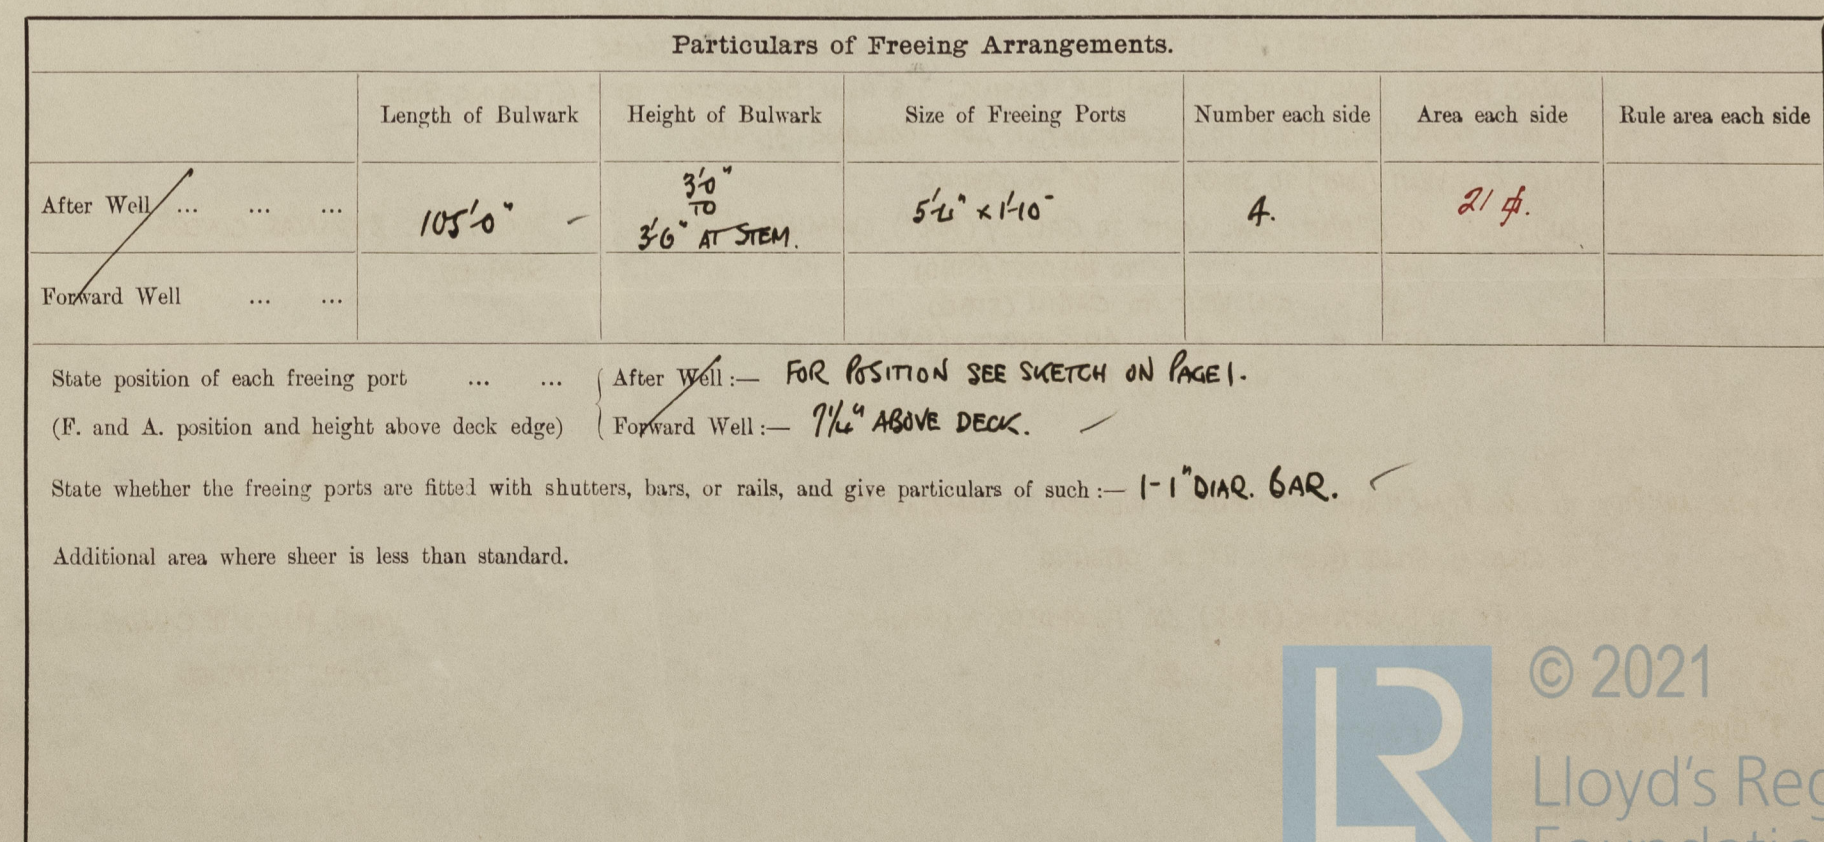 Particulars of Freeing Arrangements.
Length of Bulwark Height of Bulwark Size of Freeing Ports Number each side Area each side Rule area each side
After Well ... ... ... 105'-0" 3'-0" TO 3'-6" AT STEM. 5'-4" x 1'-10" 4. 21
Forward Well ... ...
State position of each freeing port ... ... After Well :— FOR POSITION SEE SKETCH ON PAGE 1.
(F. and A. position and height above deck edge) Forward Well :— ABOVE DECK.
State whether the freeing ports are fitted with shutters, bars, or rails, and give particulars of such :— 1-1" DIAR. BAR.
Additional area where sheer is less than standard.
LR
© 2021
Lloyd's Reg